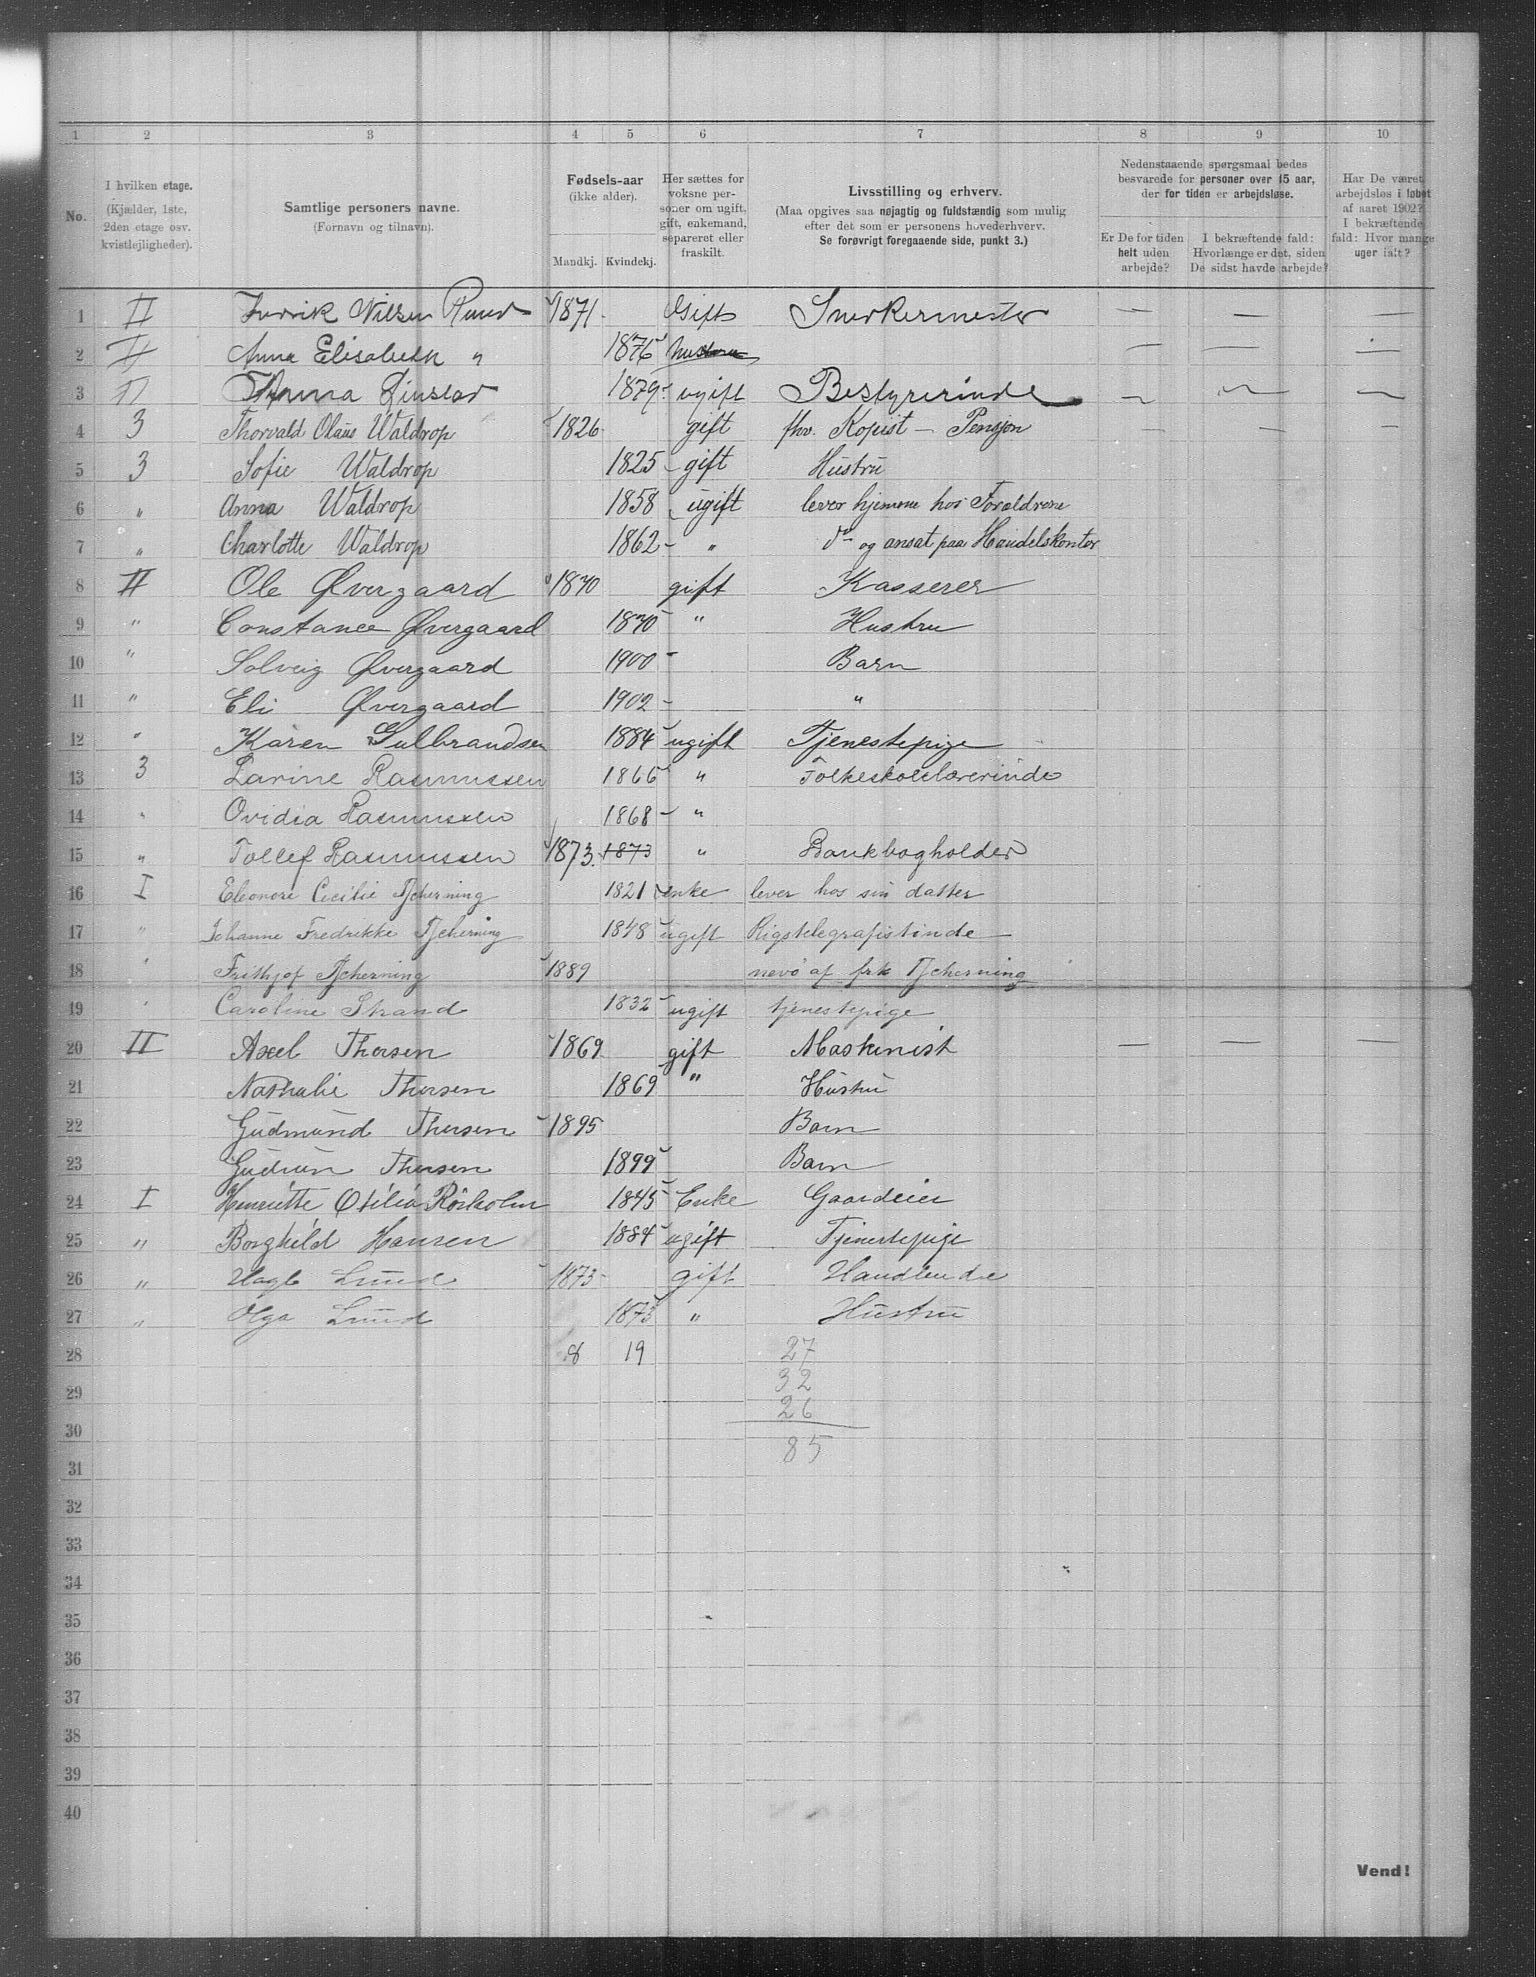 1 2 3 4 5 6 7 8 9 10
No.
I hvilken etage. (Kjælder, 1ste, 2den etage osv. kvistlejligheder).
Samtlige personers navne. (Fornavn og tilnavn).
Fødsels-aar (ikke alder). Mandkj. Kvindekj.
Her sættes for voksne personer om ugift, gift, enkemand, separeret eller fraskilt.
Livsstilling og erhverv. (Maa opgives saa nøjagtig og fuldstændig som mulig efter det som er personens hovederhverv. Se forøvrigt foregaaende side, punkt 3.)
Nedenstaaende spørgsmaal bedes besvarede for personer over 15 aar, der for tiden er arbejdsløse.
Er De for tiden helt uden arbejde?
I bekræftende fald: Hvorlænge er det, siden De sidst havde arbejde?
Har De været arbejdsløs i løbet af aaret 1902? I bekræftende fald: Hvor mange uger ialt?
1 II Nilsen Ruud 1871 Gift Snerkermester — — —
2 II Anna Elisabeth " 1876 hustru — — —
3 II Anna 1879 ugift Bestyrerinde — — —
4 3 Thorvald Olaus Waldrop 1826 gift fhv. Kopist — Pensjon — — —
5 3 Sofie Waldrop 1825 gift Hustru
6 " Anna Waldrop 1858 ugift lever hjemme hos Forældrene
7 " Charlotte Waldrop 1862 " do og ansat paa Handelskontor
8 II Ole Øvergaard 1870 gift Kasserer
9 " Constance Øvergaard 1870 " Hustru
10 " Solveig Øvergaard 1900 - Barn
11 " Eli Øvergaard 1902 - "
12 " Karen Gulbrandsen 1884 ugift Tjenestepige
13 3 Larine Rasmussen 1866 " Folkeskolelærerinde
14 " Ovidia Rasmussen 1868 "
15 " Tollef Rasmussen 1873 1873 " Bankbogholder
16 I Eleonore Cecilie Tjcherning 1821 enke lever hos sin datter
17 " Johanne Fredrikke Tjcherning 1848 ugift Rigstelegrafistinde
18 " Frithjof Tjcherning 1889 nevø af frk Tjcherning
19 " Caroline Strand 1832 ugift tjenestepige
20 II Axel Thorsen 1869 gift Maskinist — — —
21 Nathalie Thorsen 1869 " Hustru
22 Gudmund Thorsen 1895 Barn
23 Gudrun Thorsen 1899 Barn
24 I Henriette Otilia Rösholm 1845 Enke Gaardeier
25 " Borghild Hansen 1884 ugift Tjenestepige
26 " Lund 1873 gift Handlende
27 " Olga Lund 1873 " Hustru
28 8 19 27
29 32
30 26
31 85
32
33
34
35
36
37
38
39
40
Vend!